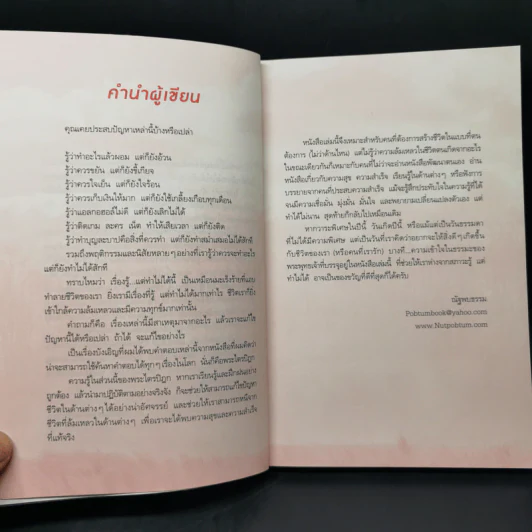 คำนำผู้เขียน
คุณเคยประสบปัญหาเหล่านี้บ้างหรือเปล่า
รู้ว่าทำอะไรแล้วผอม แต่ก็ยังอ้วน
รู้ว่าควรขยัน แต่ก็ยังขี้เกียจ
รู้ว่าควรใจเย็น แต่ก็ยังใจร้อน
รู้ว่าควรเก็บเงินให้มาก แต่ก็ยังใช้เกลี้ยงเกือบทุกเดือน
รู้ว่าแอลกอฮอล์ไม่ดี แต่ก็ยังเลิกไม่ได้
รู้ว่าติดเกม ละคร เน็ต ทำให้เสียเวลา แต่ก็ยังติด
รู้ว่าทำบุญละบาปคือสิ่งที่ควรทำ แต่ก็ยังทำสม่ำเสมอไม่ได้สักที
รวมถึงพฤติกรรมและนิสัยหลายๆอย่างที่เรารู้ว่าควรจะทำอะไร
แต่ก็ยังทำไม่ได้สักที
ทราบไหมว่า เรื่องรู้...แต่ทำไม่ได้นี้ เป็นเหมือนมะเร็งร้ายที่แอบ
ทำลายชีวิตของเรา ยิ่งเรามีเรื่องที่รู้ แต่ทำไม่ได้มากเท่าไร ชีวิตเราก็ยิ่ง
เข้าใกล้ความล้มเหลวและมีความทุกข์มากเท่านั้น
คำถามก็คือ เรื่องเหล่านี้มีสาเหตุมาจากอะไร แล้วเราจะแก้ไข
ปัญหานี้ได้หรือเปล่า ถ้าได้ จะแก้ไขอย่างไร
เป็นเรื่องบังเอิญที่ผมได้พบคำตอบเหล่านี้จากหนังสือที่ผมคิดว่า
น่าจะสามารถใช้ค้นหาคำตอบได้ทุกๆเรื่องในโลก นั่นก็คือพระไตรปิฎก
ความรู้ในส่วนนี้ของพระไตรปิฎก หากเราเรียนรู้และฝึกฝนอย่าง
ถูกต้อง แล้วนำมาปฏิบัติตามอย่างจริงจัง ก็จะช่วยให้สามารถแก้ไขปัญหา
ชีวิตในด้านต่างๆได้อย่างน่าอัศจรรย์ และช่วยให้เราสามารถหนีจาก
ชีวิตที่ล้มเหลวในด้านต่างๆ เพื่อเราจะได้พบความสุขและความสำเร็จ
ที่แท้จริง
หนังสือเล่มนี้จึงเหมาะสำหรับคนที่ต้องการสร้างชีวิตในแบบที่ตน
ต้องการ (ไม่ว่าด้านไหน) แต่ไม่รู้ว่าความล้มเหลวในชีวิตตนเกิดจากอะไร
ในขณะเดียวกันก็เหมาะกับคนที่ไม่ว่าจะอ่านหนังสือพัฒนาตนเอง อ่าน
หนังสือเกี่ยวกับความสุข ความสำเร็จ เรียนรู้ในด้านต่างๆ หรือฟังการ
บรรยายจากคนที่ประสบความสำเร็จ แม้จะรู้สึกประทับใจในความรู้ที่ได้
จนมีความเชื่อมั่น มุ่งมั่น มั่นใจ และพยายามเปลี่ยนแปลงตัวเอง แต่
ทำได้ไม่นาน สุดท้ายก็กลับไปเหมือนเดิม
หากวาระพิเศษในปีนี้ วันเกิดปีนี้ หรือแม้แต่เป็นวันธรรมดา
ที่ไม่ได้มีความพิเศษ แต่เป็นวันที่เราคิดว่าอยากจะให้สิ่งดีๆเกิดขึ้น
กับชีวิตของเรา (หรือคนที่เรารัก) บางที...ความเข้าใจในธรรมะของ
พระพุทธเจ้าที่บรรจุอยู่ในหนังสือเล่มนี้ ที่ช่วยให้เราห่างจากสภาวะรู้ แต่
ทำไม่ได้ อาจเป็นของขวัญที่ดีที่สุดก็ได้ครับ
ณัฐพบธรรม
Pobtumbook@yahoo.com
www.Nutpobtum.com